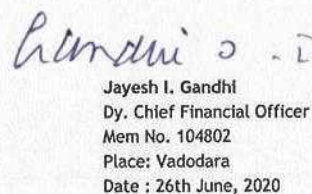 Gandhi
Jayesh I. Gandhi
Dy. Chief Financial Officer
Mem No. 104802
Place: Vadodara
Date : 26th June, 2020